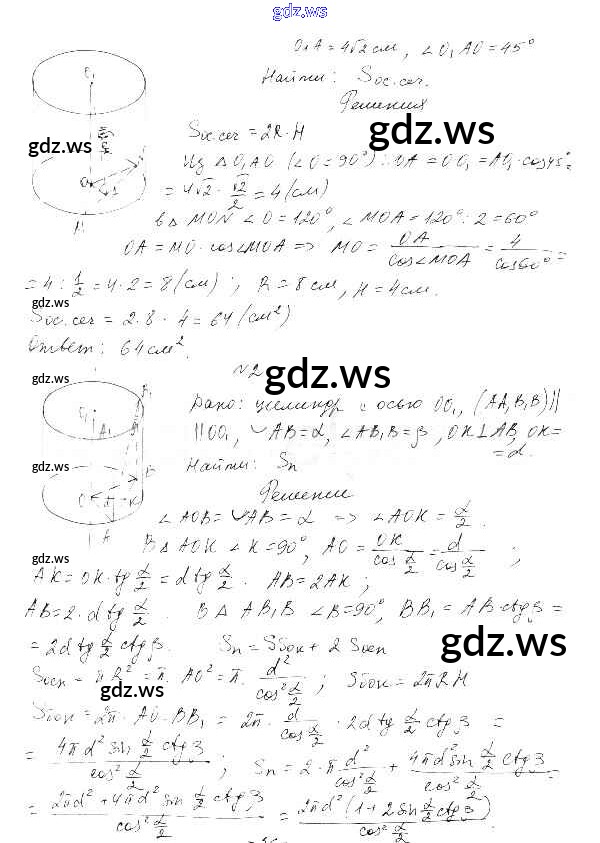 gdz.ws
O₁A = 4√2 см, ∠O₁AO = 45°
Найти: Sос.сеч.
Решения
Sос.сеч = 2R·H
Из △O₁AO (∠O = 90°): OA = OO₁ = AO₁·cos45° =
= 4√2 · √2/2 = 4 (см)
в △ MON ∠O = 120°, ∠MOA = 120° : 2 = 60°
OA = MO · cos∠MOA => MO = OA/cos∠MOA = 4/cos60° =
= 4 : 1/2 = 4·2 = 8 (см); R = 8 см, H = 4 см.
Sос.сеч = 2·8 · 4 = 64 (см²)
Ответ: 64 см².
№2
Дано: цилиндр с осью OO₁, (AA₁B₁B) ||
|| OO₁, ◡AB = α, ∠AB₁B = β, OK ⊥ AB, OK =
= d.
Найти: Sп
Решение
∠AOB = ◡AB = α => ∠AOK = α/2.
В △ AOK ∠K = 90°, AO = OK/cos α/2 = d/cos α/2;
AK = OK · tg α/2 = d tg α/2. AB = 2AK;
AB = 2·d tg α/2. В △ AB₁B ∠B = 90°, BB₁ = AB·ctgβ =
= 2d tg α/2 ctgβ. Sп = Sбок + 2 Sосн
Sосн = πR² = π · AO² = π · d²/cos² α/2; Sбок = 2πRH
Sбок = 2π · AO · BB₁ = 2π · d/cos α/2 · 2d tg α/2 ctgβ =
= 4πd² sin α/2 ctgβ/cos² α/2; Sп = 2·π d²/cos² α/2 + 4πd² sin α/2 ctgβ/cos² α/2 =
= 2πd² + 4πd² sin α/2 ctgβ/cos² α/2 = 2πd² (1 + 2 sin α/2 ctgβ)/cos² α/2
gdz.ws
gdz.ws
gdz.ws
gdz.ws
gdz.ws
gdz.ws
gdz.ws
gdz.ws
gdz.ws
gdz.ws